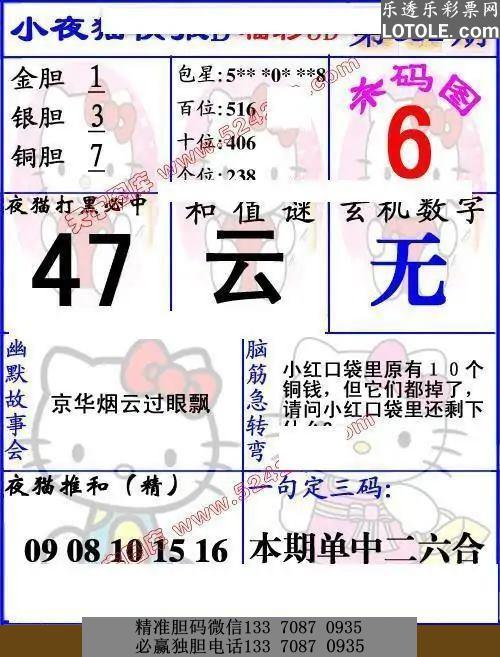 乐透乐彩票网
LOTOLE.COM
小夜猫
福彩3D
第
期
金胆 1
银胆 3
铜胆 7
包星:5** *0* **8
百位:516
十位:406
个位:238
杀码图
6
夜猫打黑必中
47
和值谜
云
玄机数字
无
幽默故事会
京华烟云过眼飘
脑筋急转弯
小红口袋里原有10个
铜钱，但它们都掉了，
请问小红口袋里还剩下
什么?
夜猫推和（精）
09 08 10 15 16
一句定三码:
本期单中二六合
精准胆码微信133 7087 0935
必赢独胆电话133 7087 0935